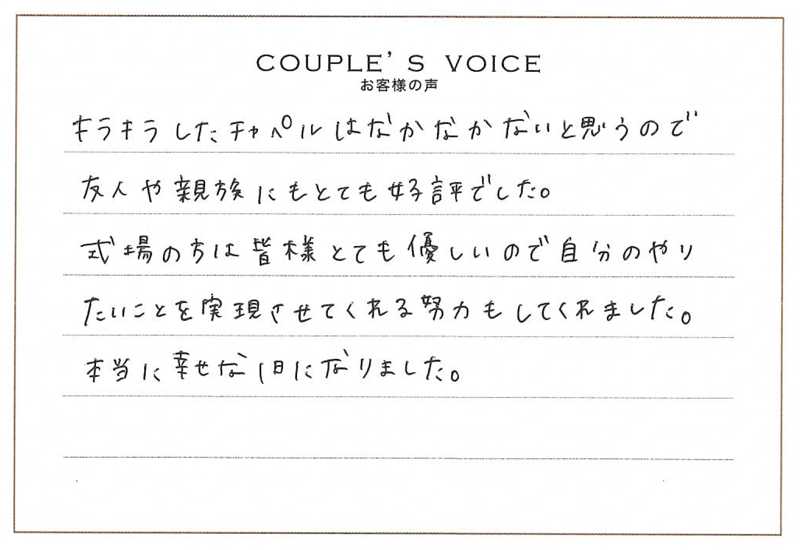 COUPLE'S VOICE
お客様の声
キラキラしたチャペルはなかなかないと思うので
友人や親族にもとても好評でした。
式場の方は皆様とても優しいので自分のやり
たいことを実現させてくれる努力もしてくれました。
本当に幸せな1日になりました。